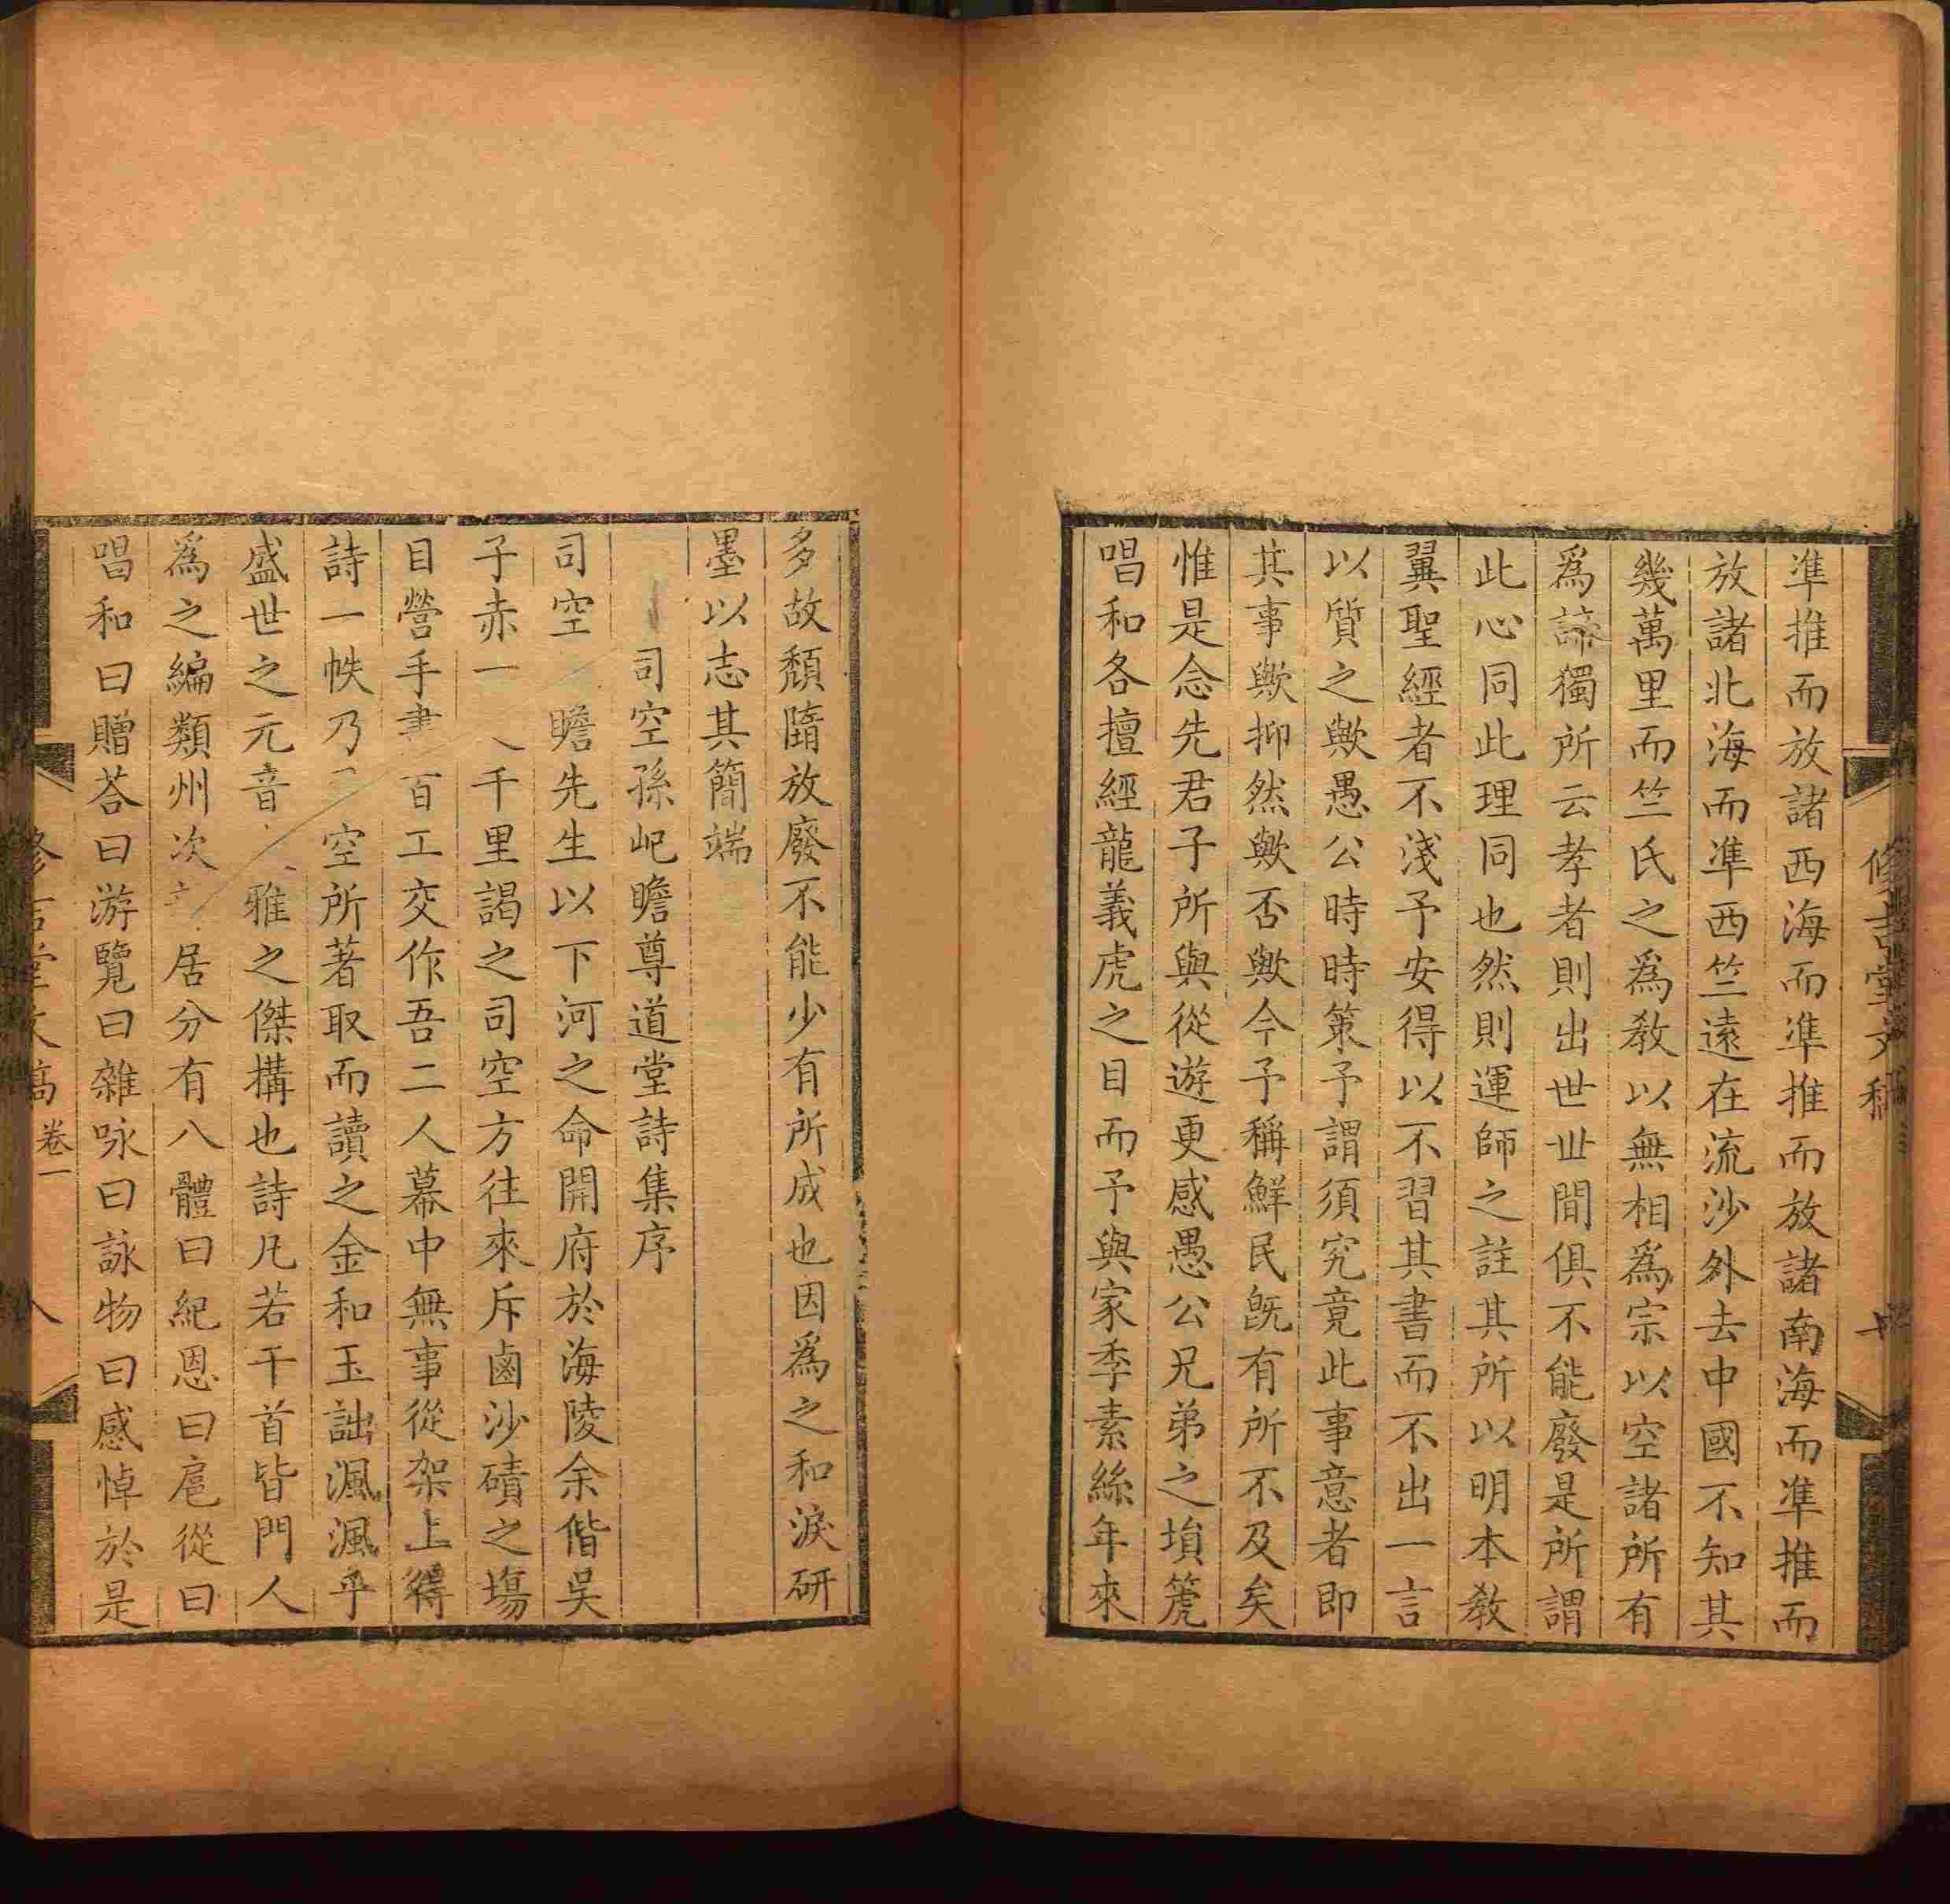 準推而放諸西海而準推而放諸南海而準推而
放諸北海而準西竺遠在流沙外去中國不知其
幾萬里而竺氏之爲教以無相爲宗以空諸所有
爲諦獨所云孝者則出世世間俱不能廢是所謂
此心同此理同也然則運師之註其所以明本教
翼聖經者不淺予安得以不習其書而不出一言
以質之歟愚公時時策予謂須究竟此事意者即
其事歟抑然歟否歟今予稱鮮民旣有所不及矣
惟是念先君子所與從遊更感愚公兄弟之塤箎
唱和各擅經龍義虎之目而予與家季素絲年來
多故頹隋放廢不能少有所成也因爲之和淚研
墨以志其簡端
司空孫屺瞻尊道堂詩集序
司空 瞻先生以下河之命開府於海陵余偕吳
子赤一 千里謁之司空方往來斥鹵沙磧之塲
目營手畫 百工交作吾二人幕中無事從架上得
詩一帙乃 空所著取而讀之金和玉詘渢渢乎
盛世之元音 雅之傑搆也詩凡若干首皆門人
爲之編類州次 居分有八體曰紀恩曰扈從曰
唱和曰贈荅曰游覽曰雜咏曰詠物曰感悼於是
修吉堂文稿 卷一 八